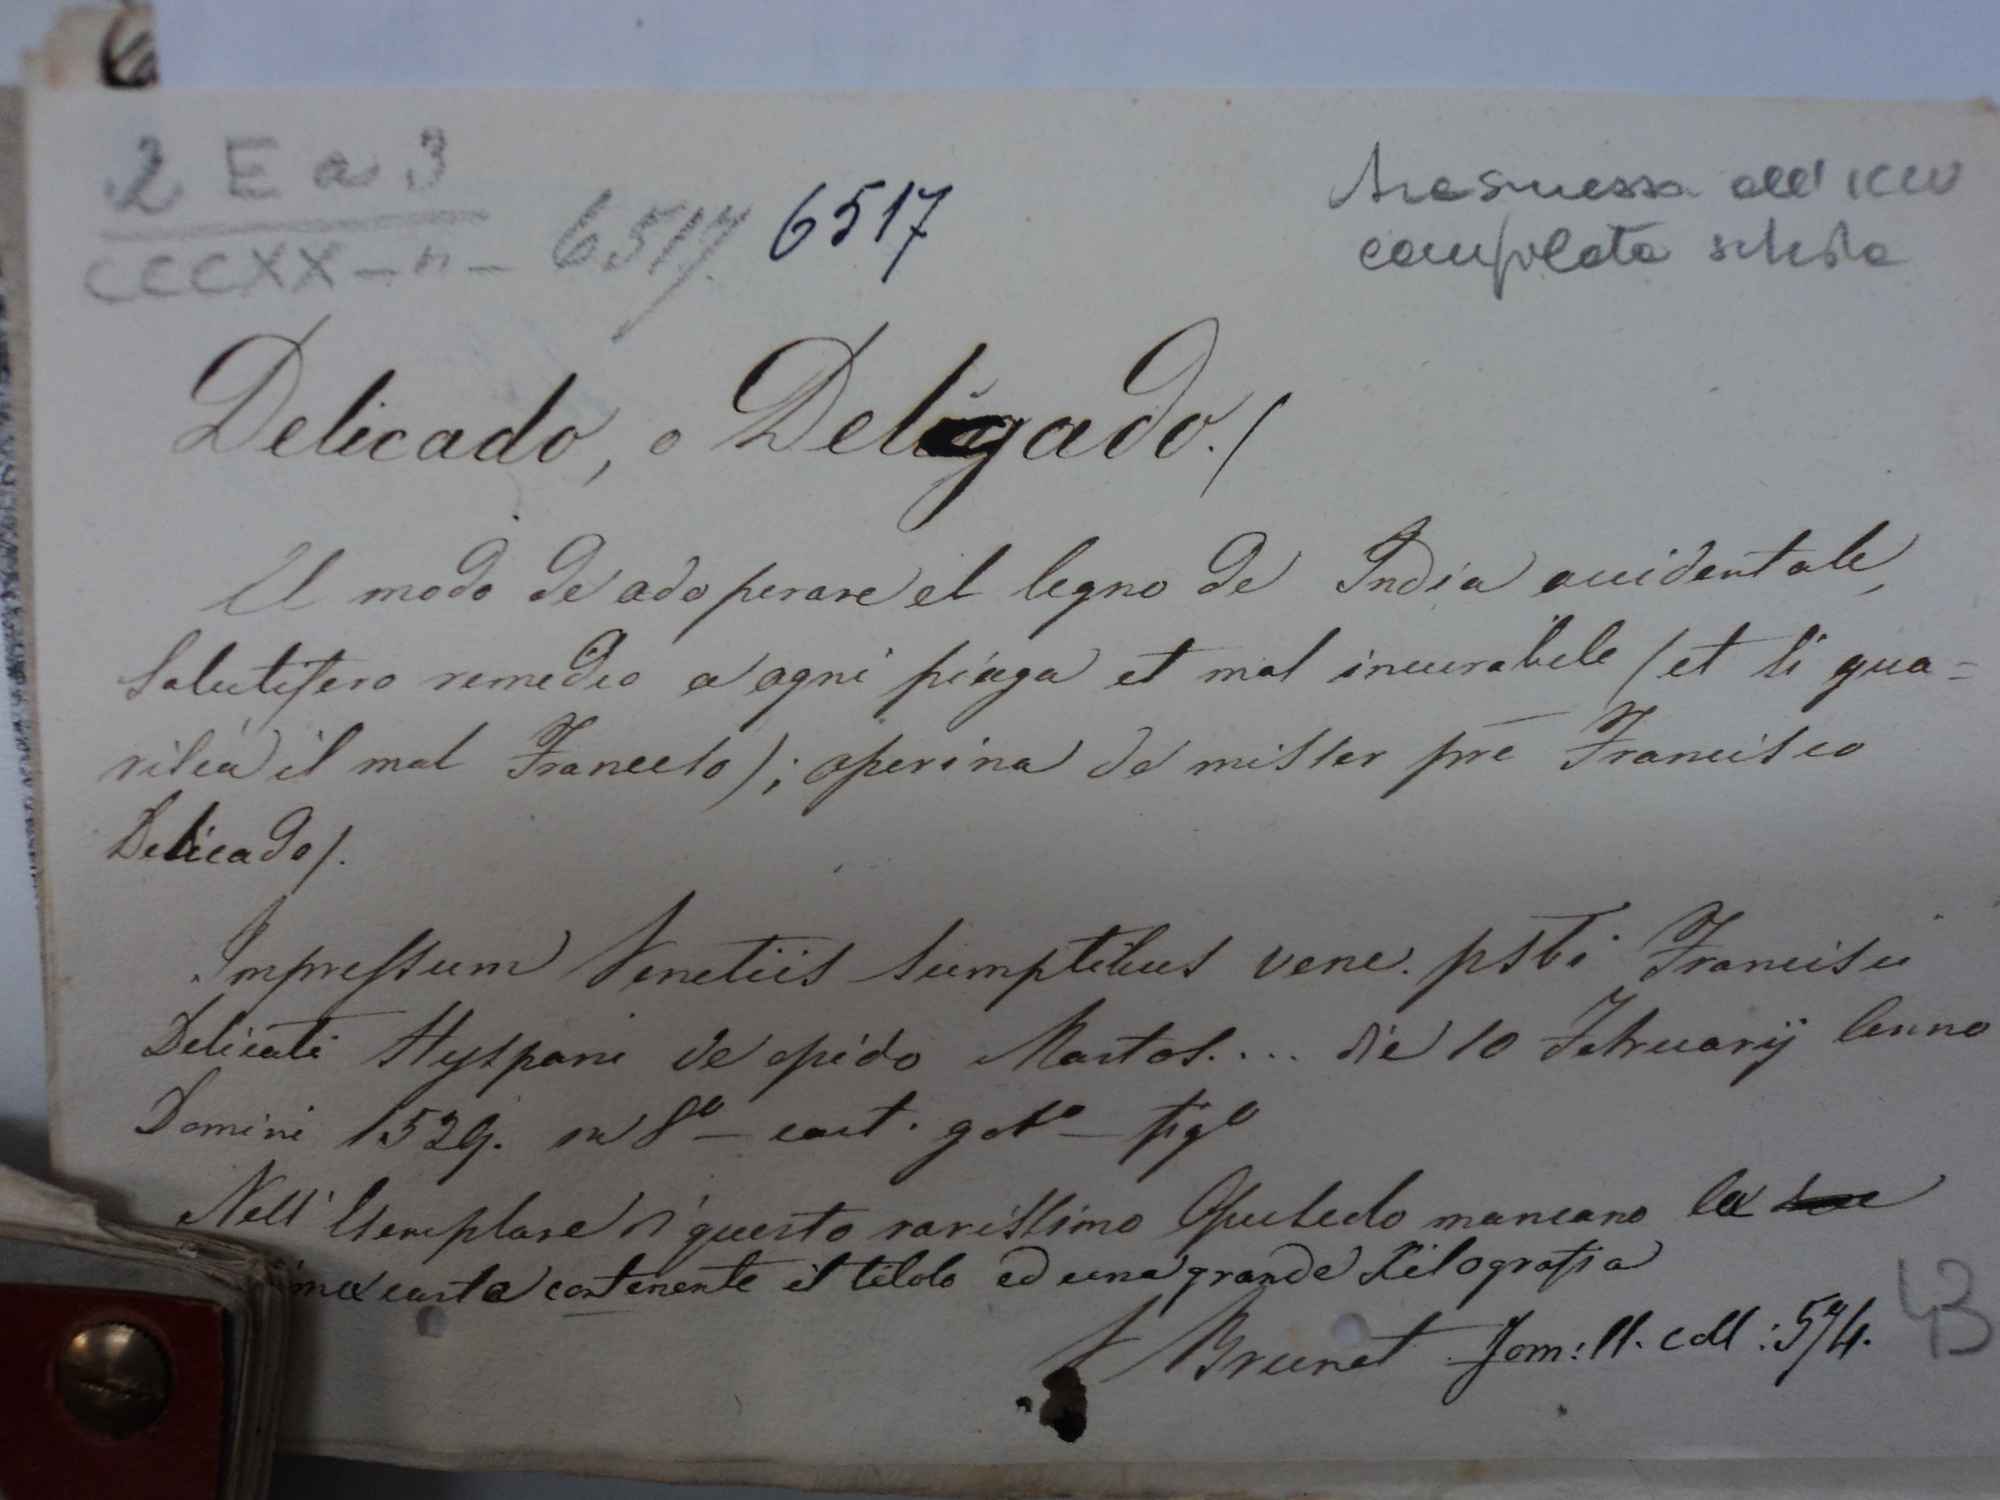 2 E a 3
CCCXX - n - 6517 6517
Trasmessa all'ICCU
compilata scheda
Delicado, o Deligado./
El modo de adoperare el legno de India occidentale,
Salutifero remedio a ogni piaga et mal incurabile (et si gua=
risca il mal Franceso); operina de misser prē Francisco
Delicado/.
Impressum Venetiis sumptibus vene. psbi Francisci
Delicati Hyspani de opido Martos.... die 10 Februarij Anno
Domini 1529. in 8º - cart. gotº - figº
Nell'Esemplare di questo rarissimo Opuscolo mancano la
ma carta contenente il titolo ed una grande Xilografia
V Brunet Tom: II. coll: 574.
43